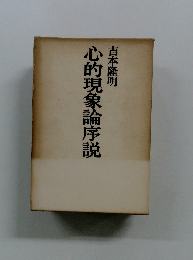 吉本隆明
心的現象論序説